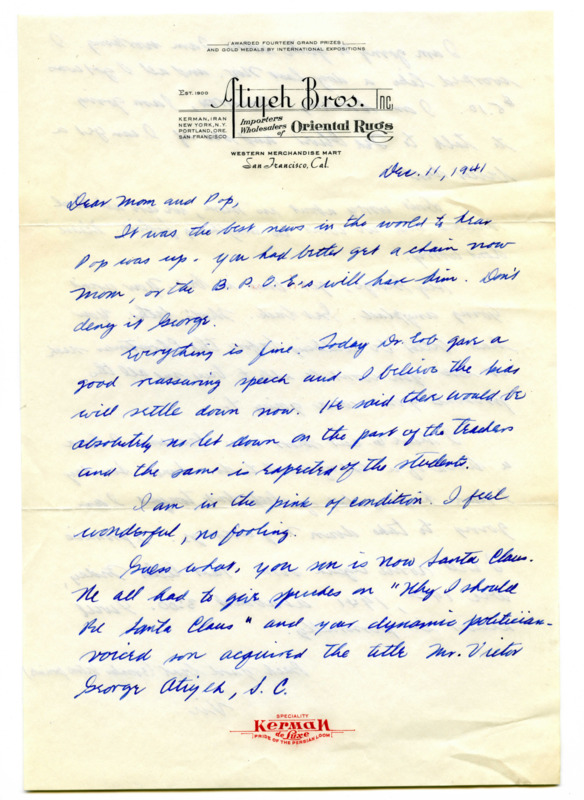 AWARDED FOURTEEN GRAND PRIZES
AND GOLD MEDALS BY INTERNATIONAL EXPOSITIONS
EST. 1900
Atiyeh Bros. Inc.
KERMAN, IRAN
NEW YORK, N.Y.
PORTLAND, ORE.
SAN FRANCISCO
Importers
Wholesalers of Oriental Rugs
WESTERN MERCHANDISE MART
San Francisco, Cal.
Dec. 11, 1941
Dear Mom and Pop,
It was the best news in the world to hear
Pop was up. You had better get a chain now
Mom, or the B. P. O. E.'s will have him. Don't
deny it George.
Everything is fine. Today Dr. Erb gave a
good reassuring speech and I believe the kids
will settle down now. He said there would be
absolutely no let down on the part of the teachers
and the same is expected of the students.
I am in the pink of condition. I feel
wonderful, no fooling.
Guess what, you son is now Santa Claus.
We all had to give speeches on "Why I should
Be Santa Claus" and your dynamic politician-
voiced son acquired the title Mr. Victor
George Atiyeh, S. C.
SPECIALITY
Kerman
de Luxe
PRIDE OF THE PERSIAN LOOM